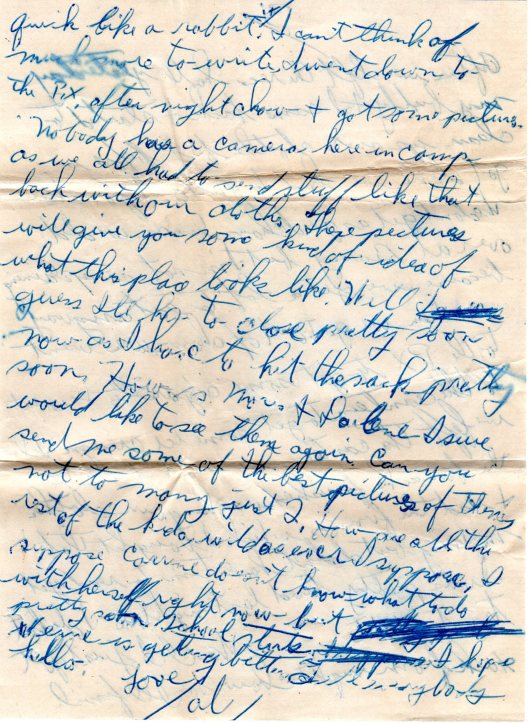 quick like a rabbit. I can't think of
much more to write. I went down to
the P.X. after night chow + got some pictures.
Nobody has a camera here in camp
as we all had to send stuff like that
back with our cloths. These pictures
will give you some kind of idea of
what this place looks like. Well I
guess I'll to close pretty soon
now as I have to hit the sack pretty
soon. How is Mom + Darlene I sure
would like to see them again. Can you
send me some of the best pictures of them
not to many just 2. How are all the
rest of the kids, wild as ever I suppose. I
suppose doesn't know what to do
with herself right now but
pretty soon School starts. I hope
is getting better. everybody
hello.
Love
Al